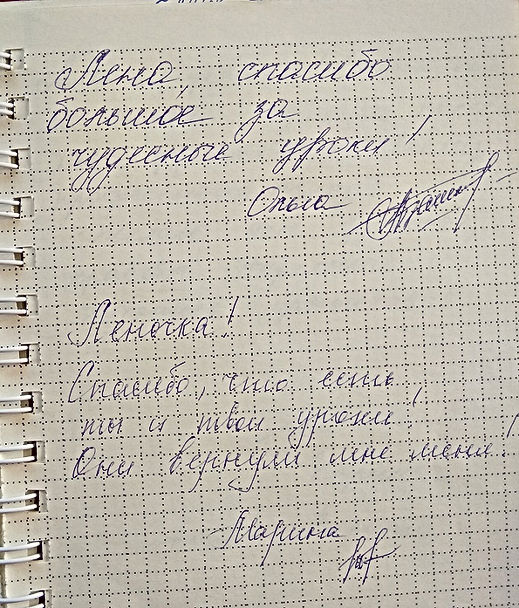 Лена, спасибо
большое за
чудесные уроки!
Ольга
Леночка!
Спасибо, что есть
ты и твои уроки!
Они вернули мне меня!
Марина